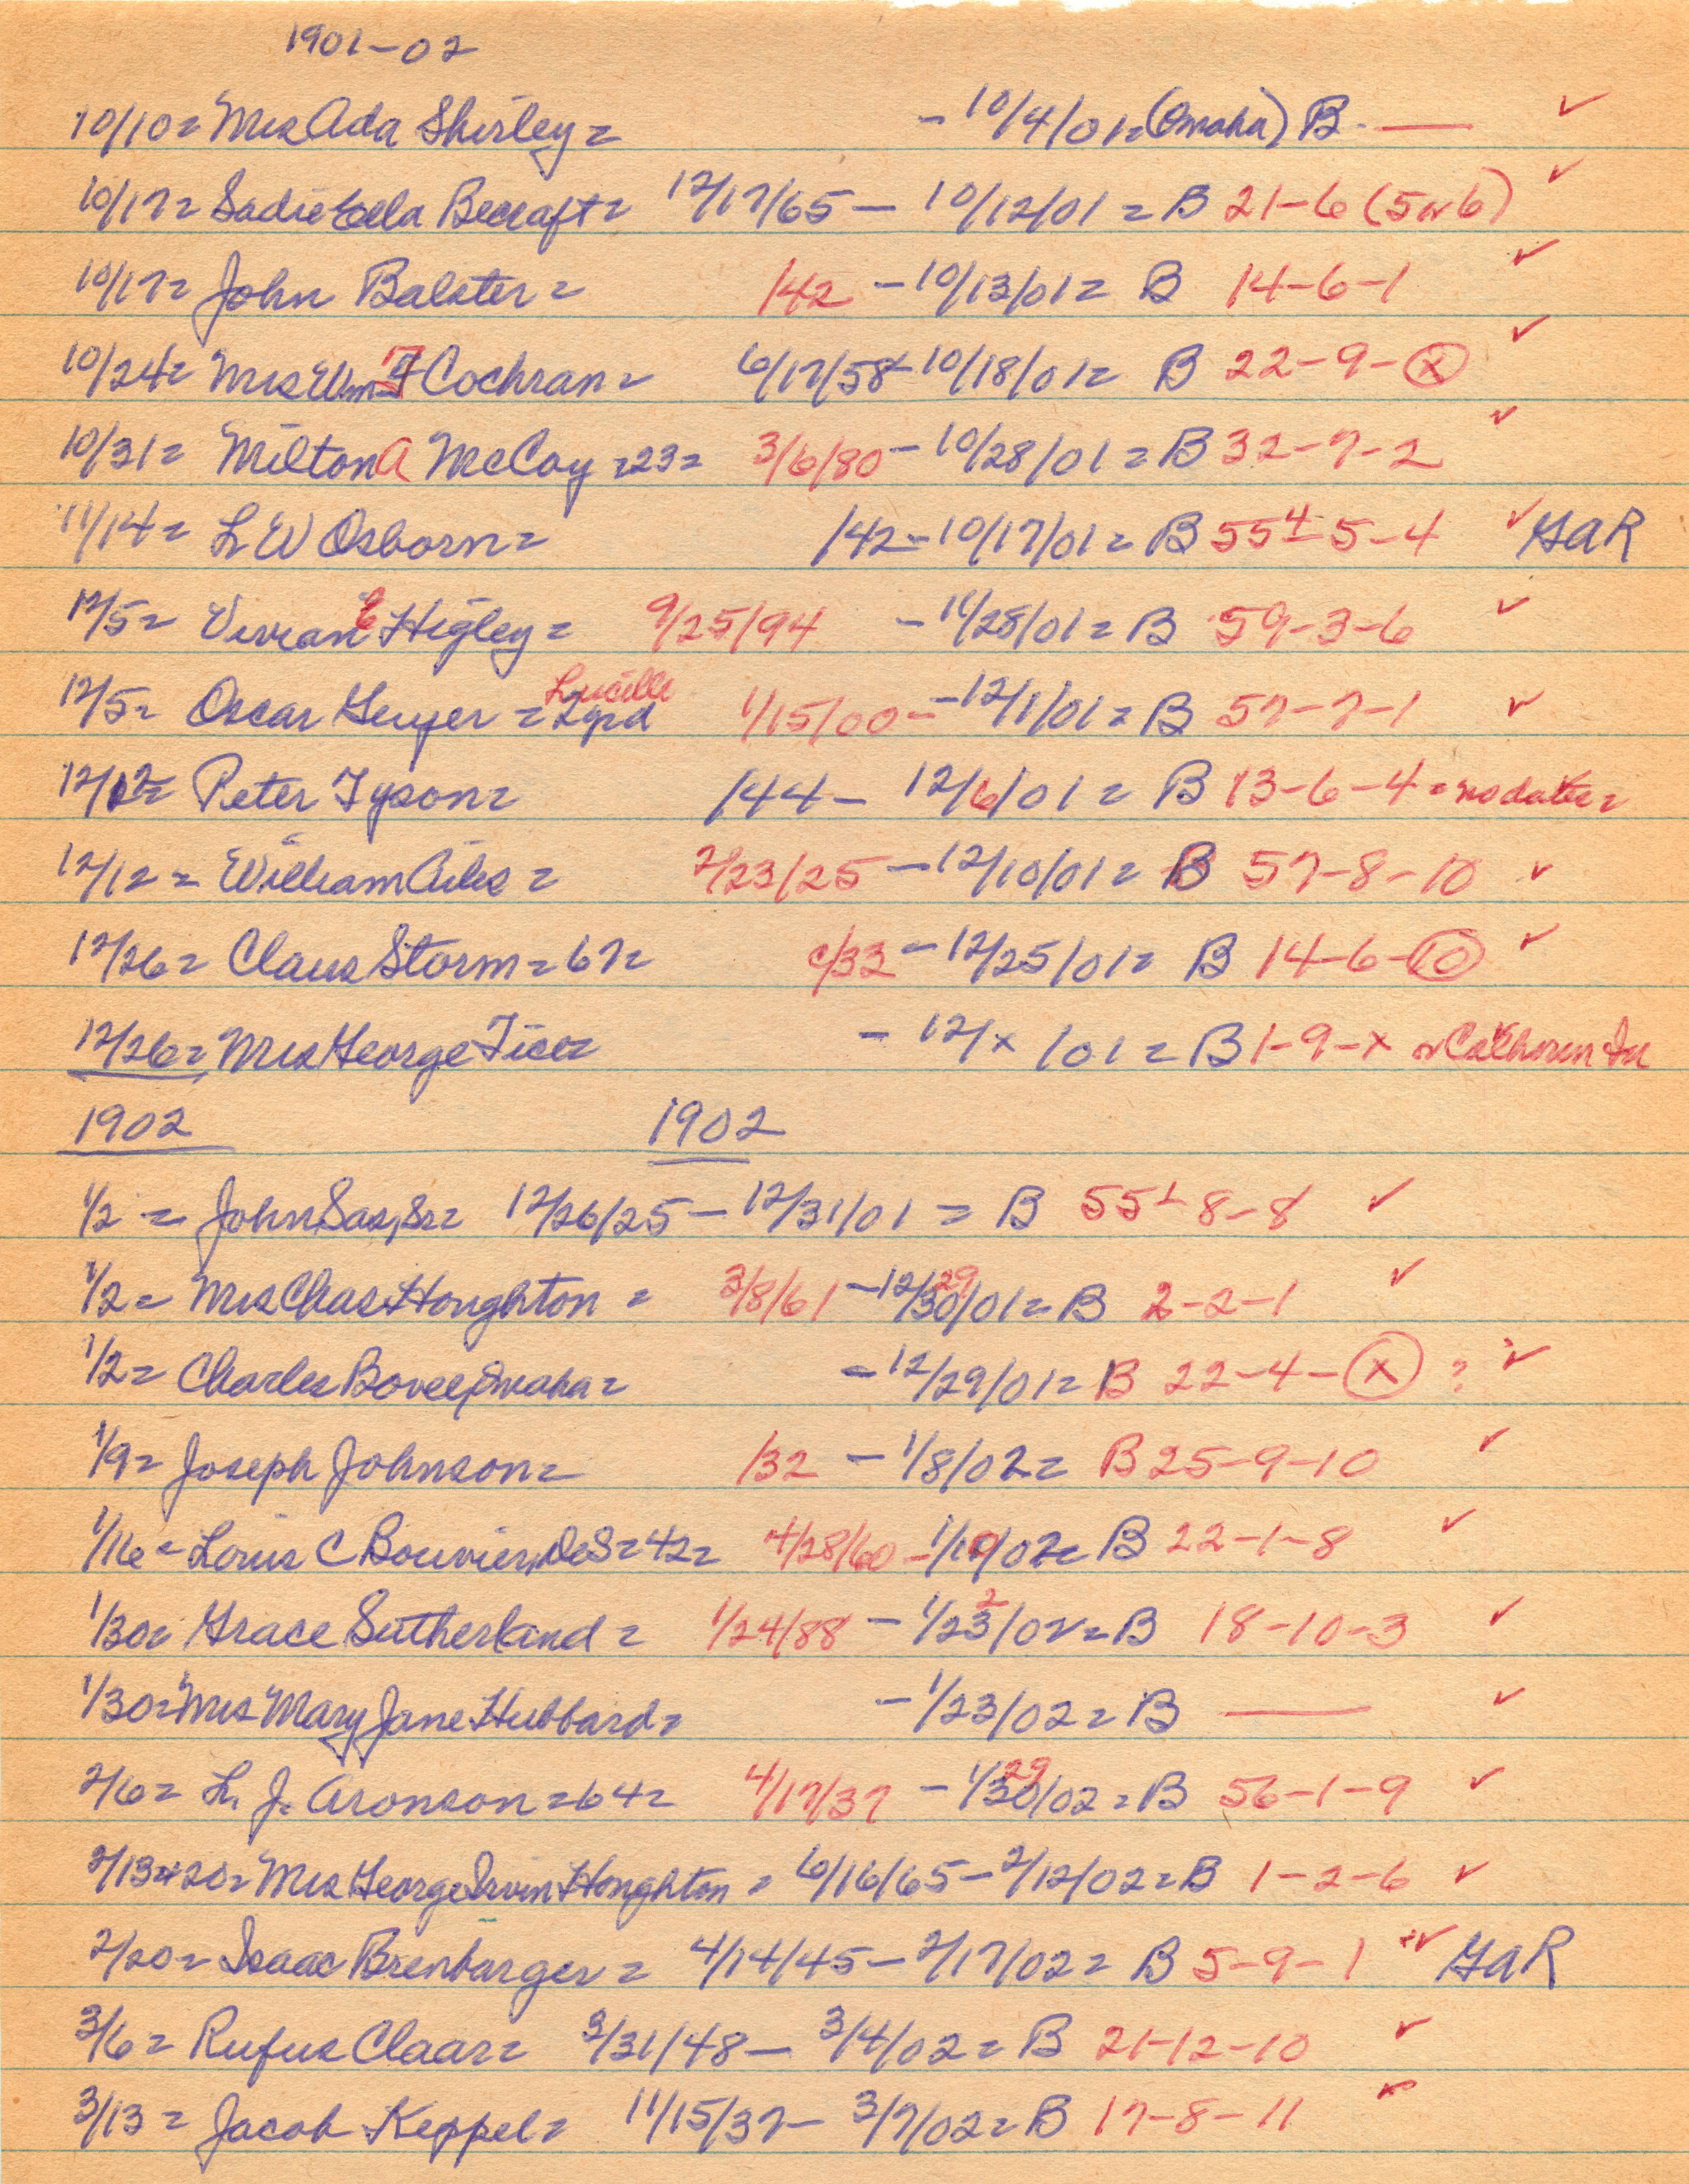 1901-02
10/10= Mrs Ada Shirley= - 10/4/01=(Omaha) B. — ✓
10/17= Sadie Cela Becraft= 12/17/65 - 10/12/01= B 21-6 (5 or 6) ✓
10/17= John Balster= /42 - 10/13/01= B 14-6-1 ✓
10/24= Mrs Wm F Cochran= 6/17/58-10/18/01= B 22-9-ⓧ ✓
10/31= Milton A McCoy=23= 3/6/80-10/28/01=B 32-7-2 ✓
11/14= L W Osborn= /42-10/17/01=B 55 4-5-4 ✓ GAR
12/5= Vivian E Higley= 9/25/94 - 11/28/01=B 59-3-6 ✓
12/5= Oscar Geyer = Lucille 2yrd 1/15/00 - 12/1/01=B 57-7-1 ✓
12/12= Peter Tyson= /44 - 12/6/01= B 13-6-4=no dates=
12/12= William Ailes= 2/23/25-12/10/01= B 57-8-10 ✓
12/26= Claus Storm=67= c/33-12/25/01= B 14-6-10 ✓
12/26= Mrs George Tice= - 12/x/01=B 1-9-x or Calhoun
1902 1902
1/2 = John Sas, Sr= 12/26/25-12/31/01= B 55 1-8-8 ✓
1/2= Mrs Chas Houghton = 3/8/61-12/30/01= 29 B 2-2-1 ✓
1/2= Charles Bovee, Omaha= -12/29/01= B 22-4-ⓧ ? ✓
1/9= Joseph Johnson= /32 - 1/8/02= B 25-9-10 ✓
1/16= Louis C Bouvier, DeS=42= 4/28/60-1/10/02= B 22-1-8 ✓
1/30= Grace Sutherland= 1/24/88 - 1/23/02= 2 B 18-10-3 ✓
1/30=Mrs Mary Jane Hubbard= - 1/23/02=B — ✓
2/6= L. J. Aronson=64= 4/17/37 - 1/30/02= 29 B 56-1-9 ✓
2/13+20= Mrs George Irvin Houghton = 6/16/65-2/12/02=B 1-2-6 ✓
2/20= Isaac Brenbarger= 4/14/45-2/17/02= B 5-9-1 ✓ GAR
3/6= Rufus Claar= 3/31/48- 3/4/02= B 21-12-10 ✓
3/13= Jacob Keppel= 11/15/37- 3/7/02=B 17-8-11 ✓